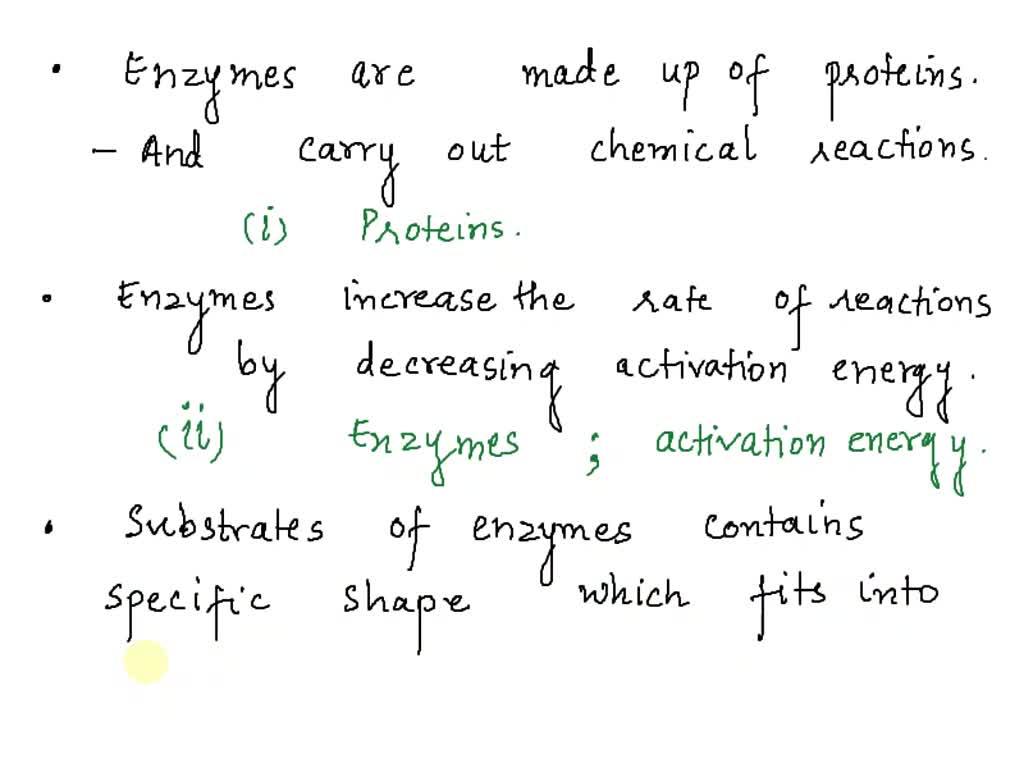 • Enzymes are made up of proteins.
- And carry out chemical reactions.
(i) Proteins.
• Enzymes increase the rate of reactions
by decreasing activation energy.
(ii) Enzymes ; activation energy.
• Substrates of enzymes contains
specific shape which fits into